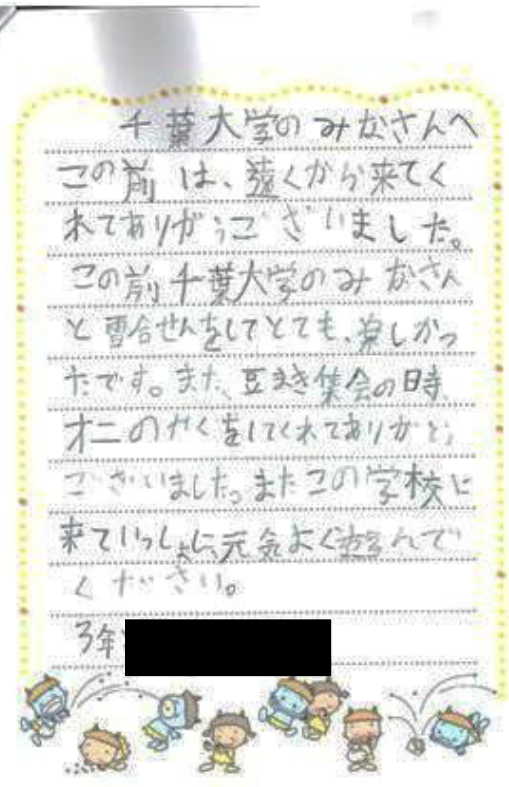 千葉大学のみかさんへ
この前は、遠くから来てく
れてありがうございました。
この前千葉大学のみかさん
と雪合せんをしてとても、楽しかっ
たです。また、豆まき集会の時、
オニのやくをしてくれてありがとう
ございました。またこの学校に
来ていっしょに元気よく遊んで
ください。
3年